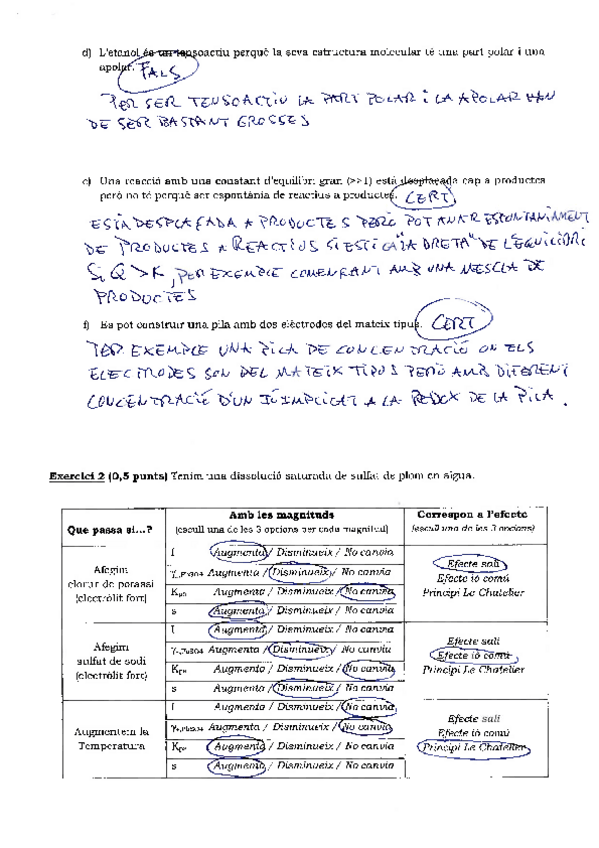 d) L'etanol és un tensoactiu perquè la seva estructura molecular té una part polar i una
apolar. FALS
PER SER TENSOACTIU LA PART POLAR I LA APOLAR HAN
DE SER BASTANT GROSSES
e) Una reacció amb una constant d'equilibri gran (>>1) està desplaçada cap a productes
però no té perquè ser espontània de reactius a productes. CERT
ESTÀ DESPLAÇADA A PRODUCTES PERÒ POT ANAR ESPONTÀNIAMENT
DE PRODUCTES A REACTIUS SI ESTIC A "LA DRETA" DE L'EQUILIBRI
SI Q > K, PER EXEMPLE COMENÇANT AMB UNA MESCLA DE
PRODUCTES
f) Es pot construir una pila amb dos elèctrodes del mateix tipus. CERT
PER EXEMPLE UNA PILA DE CONCENTRACIÓ ON ELS
ELECTRODES SON DEL MATEIX TIPUS PERÒ AMB DIFERENT
CONCENTRACIÓ D'UN IÓ IMPLICAT A LA REDOX DE LA PILA.
Exercici 2 (0,5 punts) Tenim una dissolució saturada de sulfat de plom en aigua.
Que passa si...?
Amb les magnituds
(escull una de les 3 opcions per cada magnitud)
Correspon a l'efecte
(escull una de les 3 opcions)
Afegim
clorur de potassi
(electròlit fort)
I Augmenta / Disminueix / No canvia
γ±,PbSO4 Augmenta / Disminueix / No canvia
Kps Augmenta / Disminueix / No canvia
s Augmenta / Disminueix / No canvia
Efecte salí
Efecte ió comú
Principi Le Chatelier
Afegim
sulfat de sodi
(electròlit fort)
I Augmenta / Disminueix / No canvia
γ±,PbSO4 Augmenta / Disminueix / No canvia
Kps Augmenta / Disminueix / No canvia
s Augmenta / Disminueix / No canvia
Efecte salí
Efecte ió comú
Principi Le Chatelier
Augmentem la
Temperatura
I Augmenta / Disminueix / No canvia
γ±,PbSO4 Augmenta / Disminueix / No canvia
Kps Augmenta / Disminueix / No canvia
s Augmenta / Disminueix / No canvia
Efecte salí
Efecte ió comú
Principi Le Chatelier